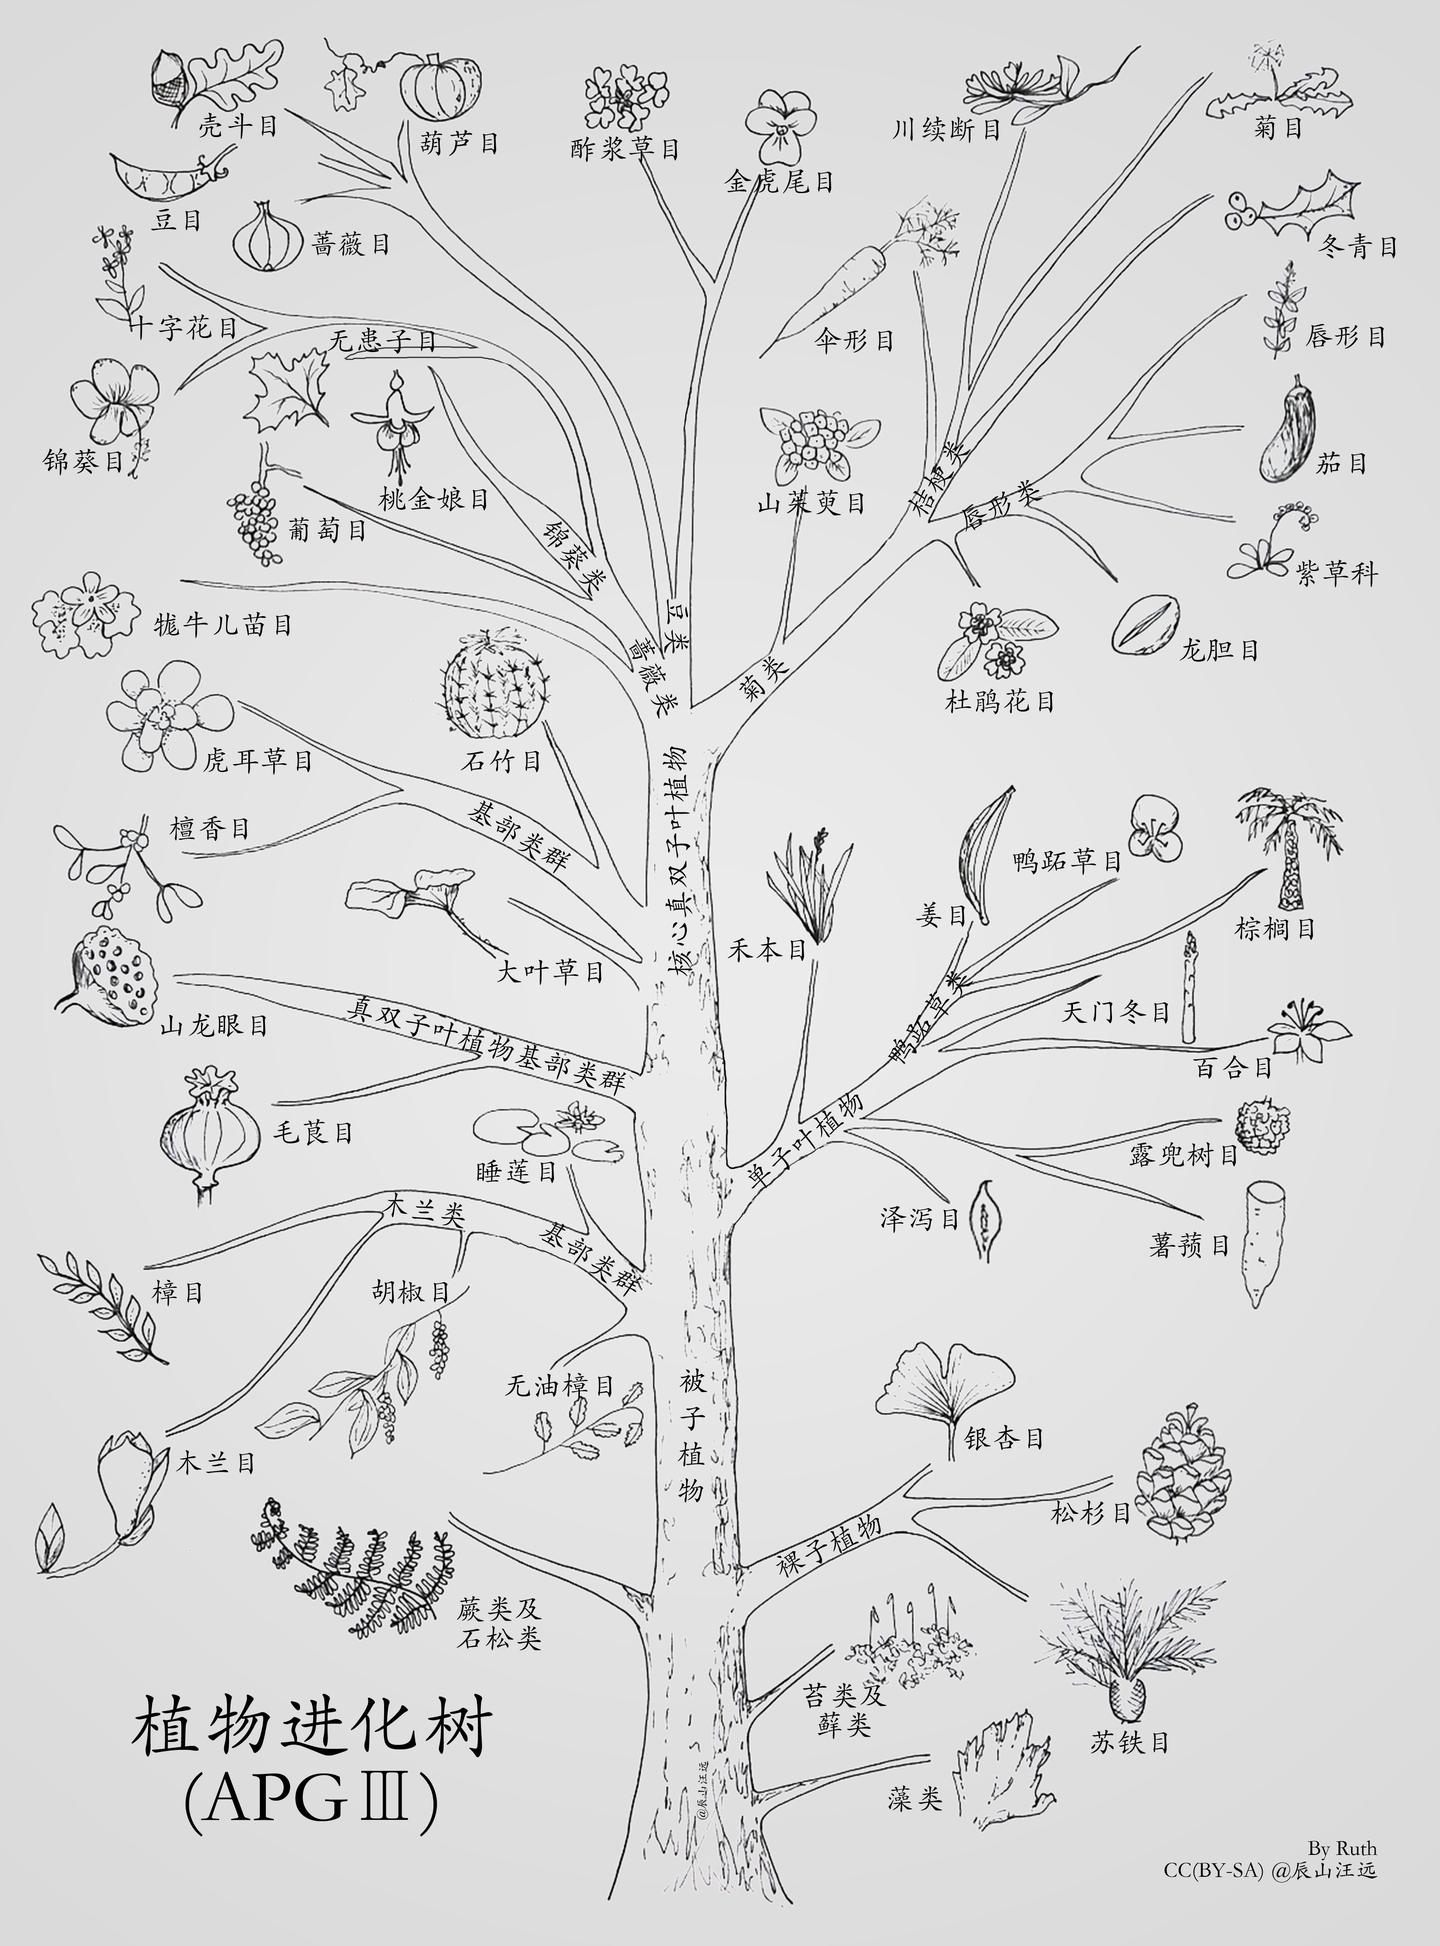 壳斗目
葫芦目
酢浆草目
金虎尾目
川续断目
菊目
豆目
蔷薇目
冬青目
十字花目
无患子目
伞形目
唇形目
锦葵目
桃金娘目
葡萄目
山茱萸目
桔梗类
唇形类
茄目
紫草科
锦葵类
豆类
蔷薇类
菊类
牻牛儿苗目
杜鹃花目
龙胆目
虎耳草目
石竹目
檀香目
基部类群
核心真双子叶植物
大叶草目
禾本目
姜目
鸭跖草目
棕榈目
山龙眼目
真双子叶植物基部类群
鸭跖草类
天门冬目
百合目
毛茛目
睡莲目
单子叶植物
露兜树目
泽泻目
薯蓣目
木兰类
基部类群
樟目
胡椒目
无油樟目
被子植物
木兰目
银杏目
松杉目
裸子植物
蕨类及
石松类
苔类及
藓类
苏铁目
藻类
@辰山汪远
植物进化树
(APGⅢ)
By Ruth
CC(BY-SA) @辰山汪远